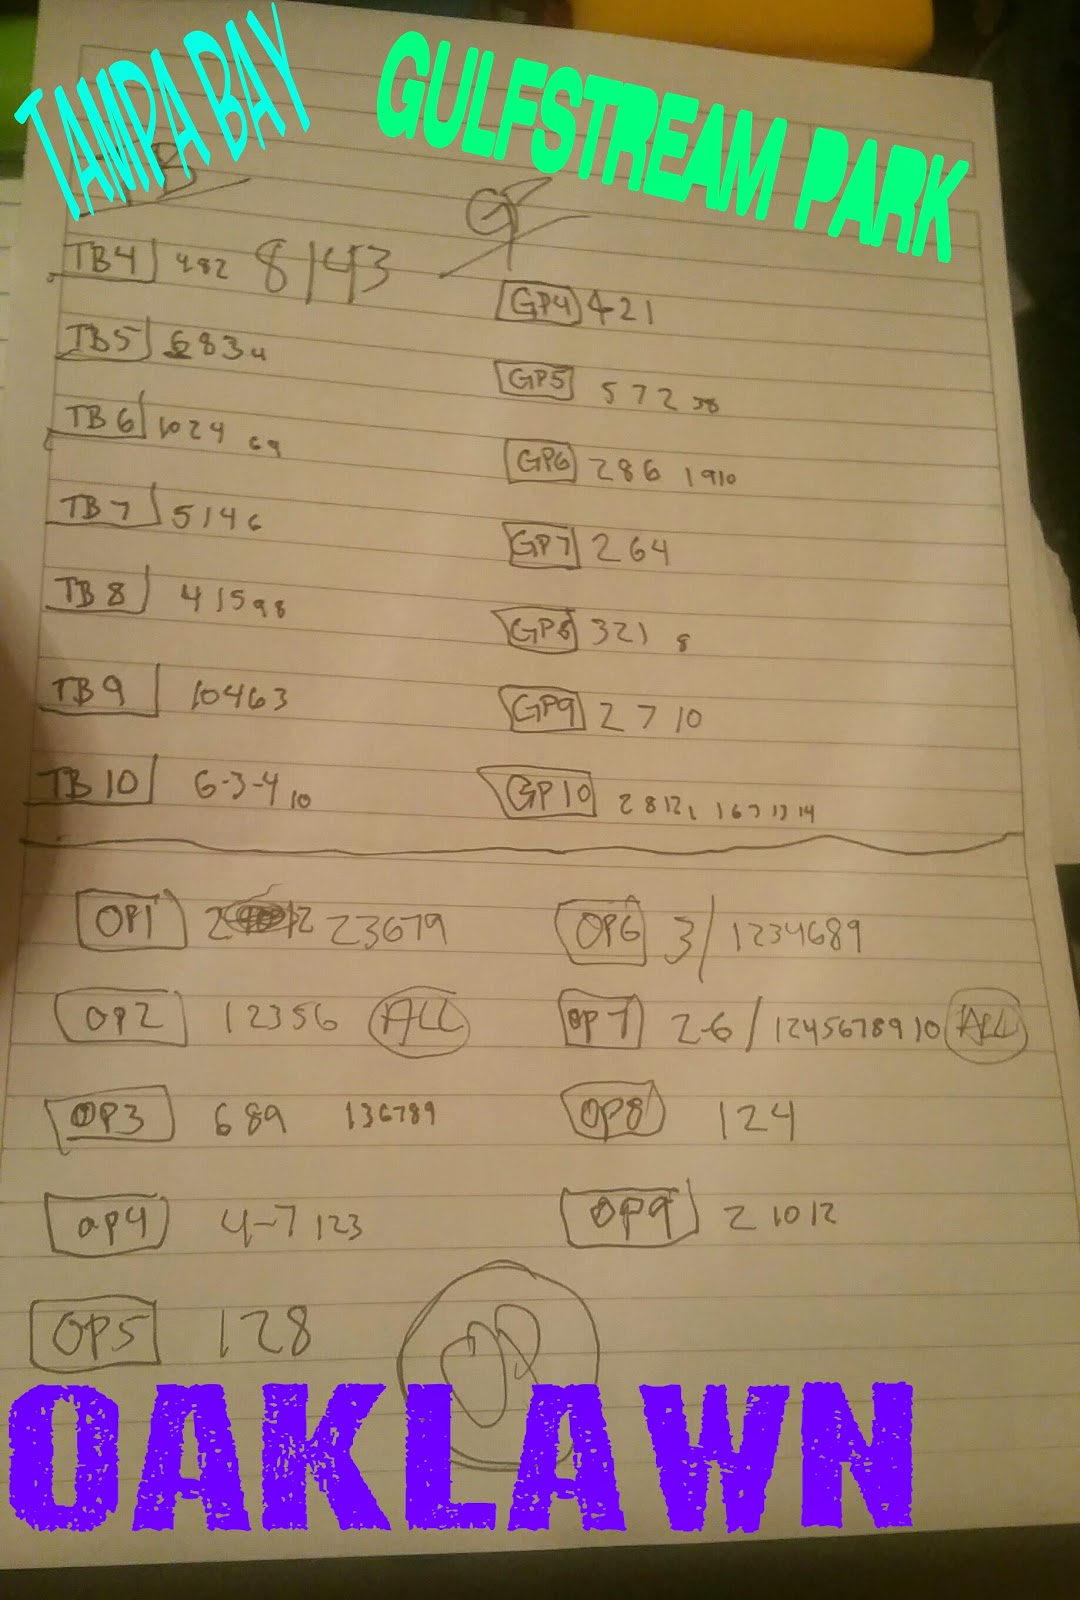 TAMPA BAY
GULFSTREAM PARK
TB4 482 8/43
TB5 6834
TB6 1024 69
TB7 5146
TB8 41598
TB9 10463
TB10 6-3-4 10
GP4 421
GP5 572 38
GP6 286 1910
GP7 264
GP8 321 8
GP9 2 7 10
GP10 2 8 12
OP1 2 12 23679
OP2 12356 ALL
OP3 689 136789
OP4 4-7 123
OP5 128
OP6 3/1234689
OP7 2-6/1245678910 ALL
OP8 124
OP9 2 10 12
OP
OAKLAWN